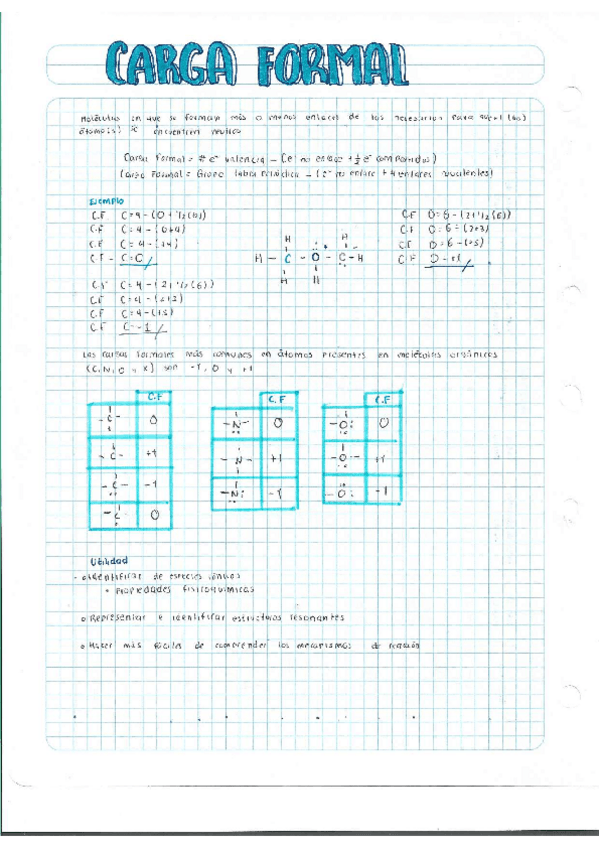 CARGA FORMAL
Moléculas en que se forman más o menos enlaces de los necesarios para que el (los)
átomo(s) se encuentren neutro
Carga Formal = # e- valencia - (e- no enlace + ½ e- compartidos)
Carga Formal = Grupo tabla periódica - (e- no enlace + # enlaces covalentes)
Ejemplo
C.F C=4-(0+1/2(8))
C.F C=4-(0+4)
C.F C=4-(4)
C.F - C=0
C.F C=4-(2+1/2(6))
C.F C=4-(2+3)
C.F C=4-(5)
C.F C=-1
H H
H - C - O - C - H
H H
C.F O=6-(2+1/2(6))
C.F O=6-(2+3)
C.F O=6-(5)
C.F O=+1
Las cargas formales más comunes en átomos presentes en moléculas orgánicas
(C, N, O y X) son -1, 0 y +1
C.F
-C- 0
-C- +1
-C- -1
-C- 0
C.F
-N- 0
-N- +1
-N: -1
C.F
-O: 0
-O- +1
-O: -1
Utilidad
- Identificar de especies iónicas
• Propiedades fisicoquímicas
o Representar e identificar estructuras resonantes
o Hacer más fáciles de comprender los mecanismos de reacción